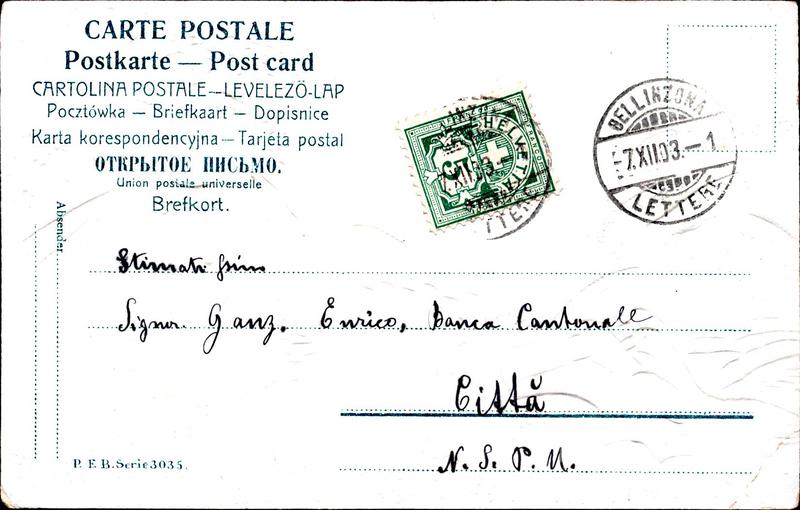 CARTE POSTALE
Postkarte — Post card
CARTOLINA POSTALE — LEVELEZÖ-LAP
Pocztówka — Briefkaart — Dopisnice
Karta korespondencyjna — Tarjeta postal
ОТКРЫТОЕ ПИСЬМО.
Union postale universelle
Brefkort.
HELVETIA
5
BELLINZONA
-7.XII.03.-1
LETTERE
Absender
Signor Ganz. Enrico, Banca Cantonale
Città
N. S. P. M.
P. F. B. Serie 3035.